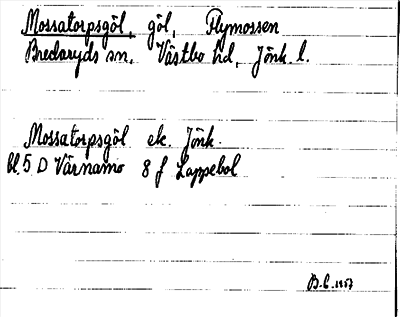 Mossatorpsgöl, göl, Flymossen
Bredaryds sn, Västbo hd, Jönk. l.
Mossatorpsgöl ek. Jönk.
bl. 5 D Värnamo 8 f Lappebol
B.C. 1957